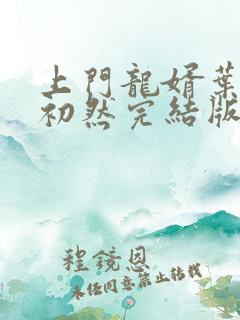 上門龍婿葉
初然完結版
程鏡恩
未经同意禁止转载